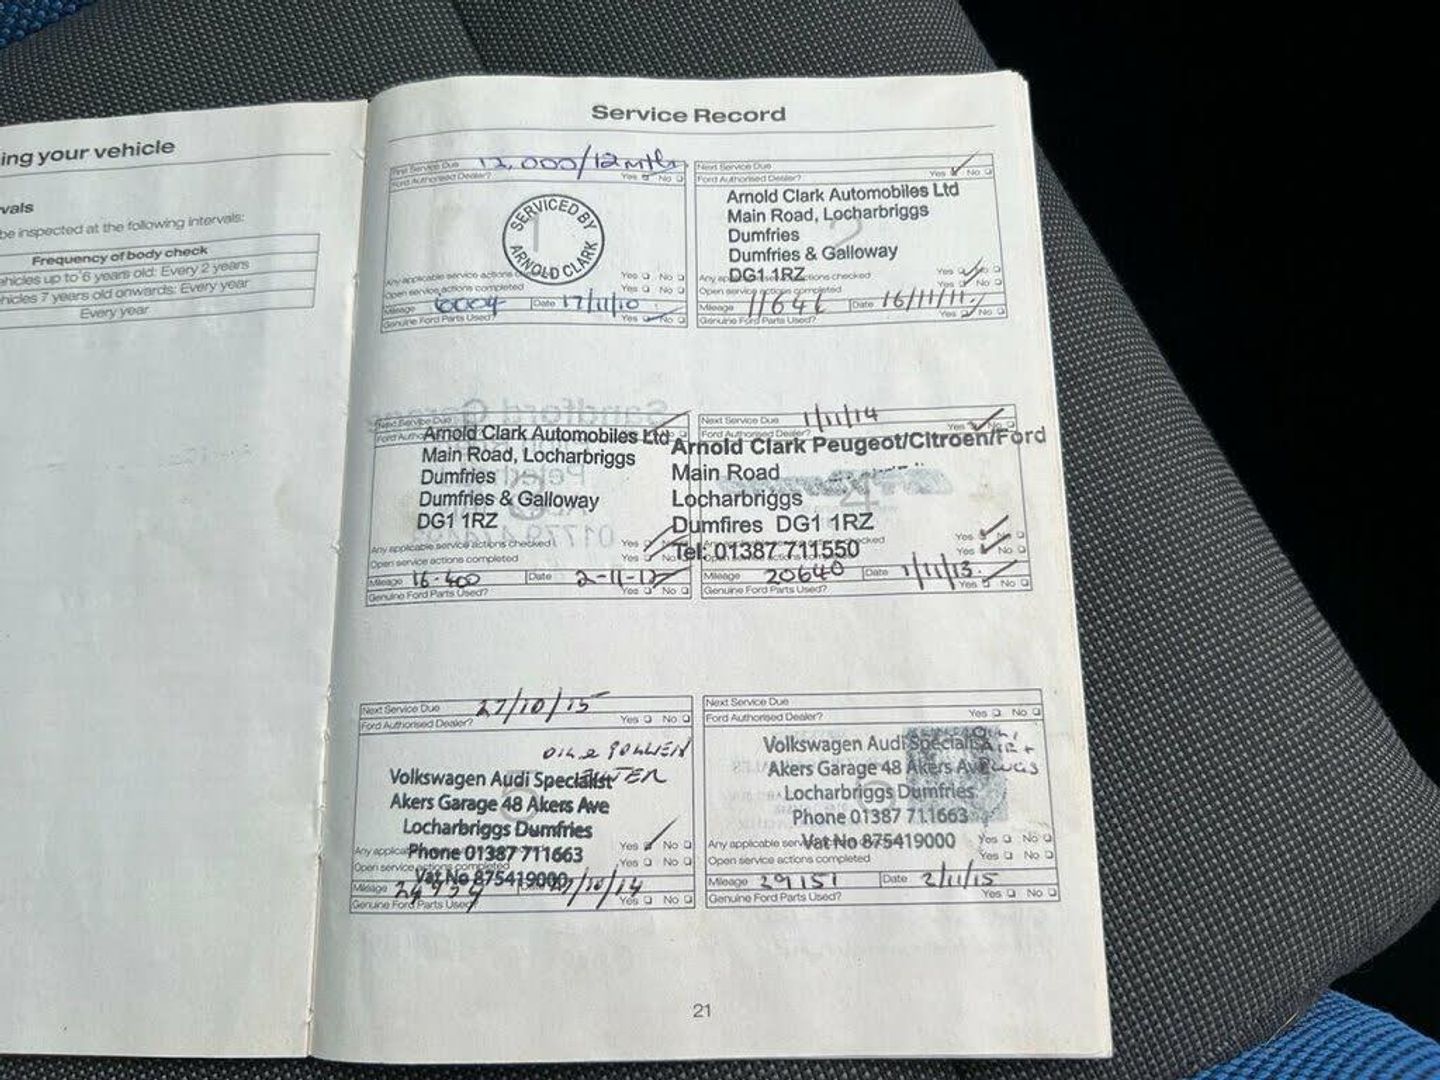 ing your vehicle
vals
be inspected at the following intervals:
Frequency of body check
ehicles up to 6 years old: Every 2 years
ehicles 7 years old onwards: Every year
Every year
Service Record
First Service Due 12,000/12 mths
Ford Authorised Dealer? Yes No
1
SERVICED BY
ARNOLD CLARK
Any applicable service actions Yes No
Open service actions completed Yes No
Mileage 6004 Date 17/11/10
Genuine Ford Parts Used? Yes No
Next Service Due
Ford Authorised Dealer? Yes No
Arnold Clark Automobiles Ltd
Main Road, Locharbriggs
Dumfries
2
Dumfries & Galloway
DG1 1RZ
Any applicable service actions checked Yes No
Open service actions completed Yes No
Mileage 11641 Date 16/11/11
Genuine Ford Parts Used? Yes No
Next Service Due
Ford Auth
Arnold Clark Automobiles Ltd
Main Road, Locharbriggs
Dumfries
Dumfries & Galloway
3
DG1 1RZ
Any applicable service actions checked Yes No
Open service actions completed Yes No
Mileage 16-400 Date 2-11-12
Genuine Ford Parts Used? Yes No
Next Service Due 1/11/14
Ford Authorised Dealer? Yes No
Arnold Clark Peugeot/Citroen/Ford
Main Road
4
Locharbriggs
Dumfires DG1 1RZ
Tel: 01387 711550
checked Yes No
Open service actions completed Yes No
Mileage 20640 Date 1/11/13.
Genuine Ford Parts Used? Yes No
Next Service Due 27/10/15
Ford Authorised Dealer? Yes No
OIL & POLLEN
FILTER
Volkswagen Audi Specialist
Akers Garage 48 Akers Ave
5
Locharbriggs Dumfries
Any applica Yes No
Phone 01387 711663
Open service actions completed Yes No
Vat No 875419000
Mileage 27/10/14
Genuine Ford Parts Used Yes No
Next Service Due
Ford Authorised Dealer? Yes No
OIL,
AIR +
PLUGS
Volkswagen Audi Specialis
Akers Garage 48 Akers Av
6
Locharbriggs Dumfries
Phone 01387 711663
Any applicable serv Yes No
Vat No 875419000
Open service actions completed Yes No
Mileage 29151 Date 2/11/15
Genuine Ford Parts Used? Yes No
21